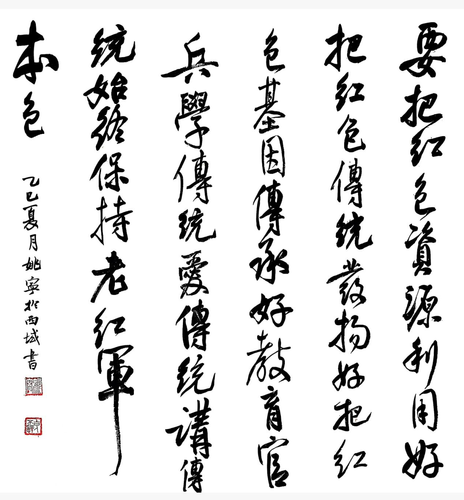 要把红色資源利用好
把红色傳统發扬好把红
色基因傳承好教育官
兵學傳统愛傳统講傳
统始终保持老红軍
本色
乙巳夏月姚寧於西城書